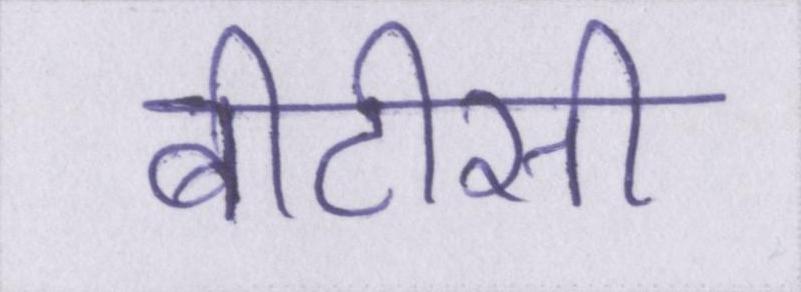 बीटीसी